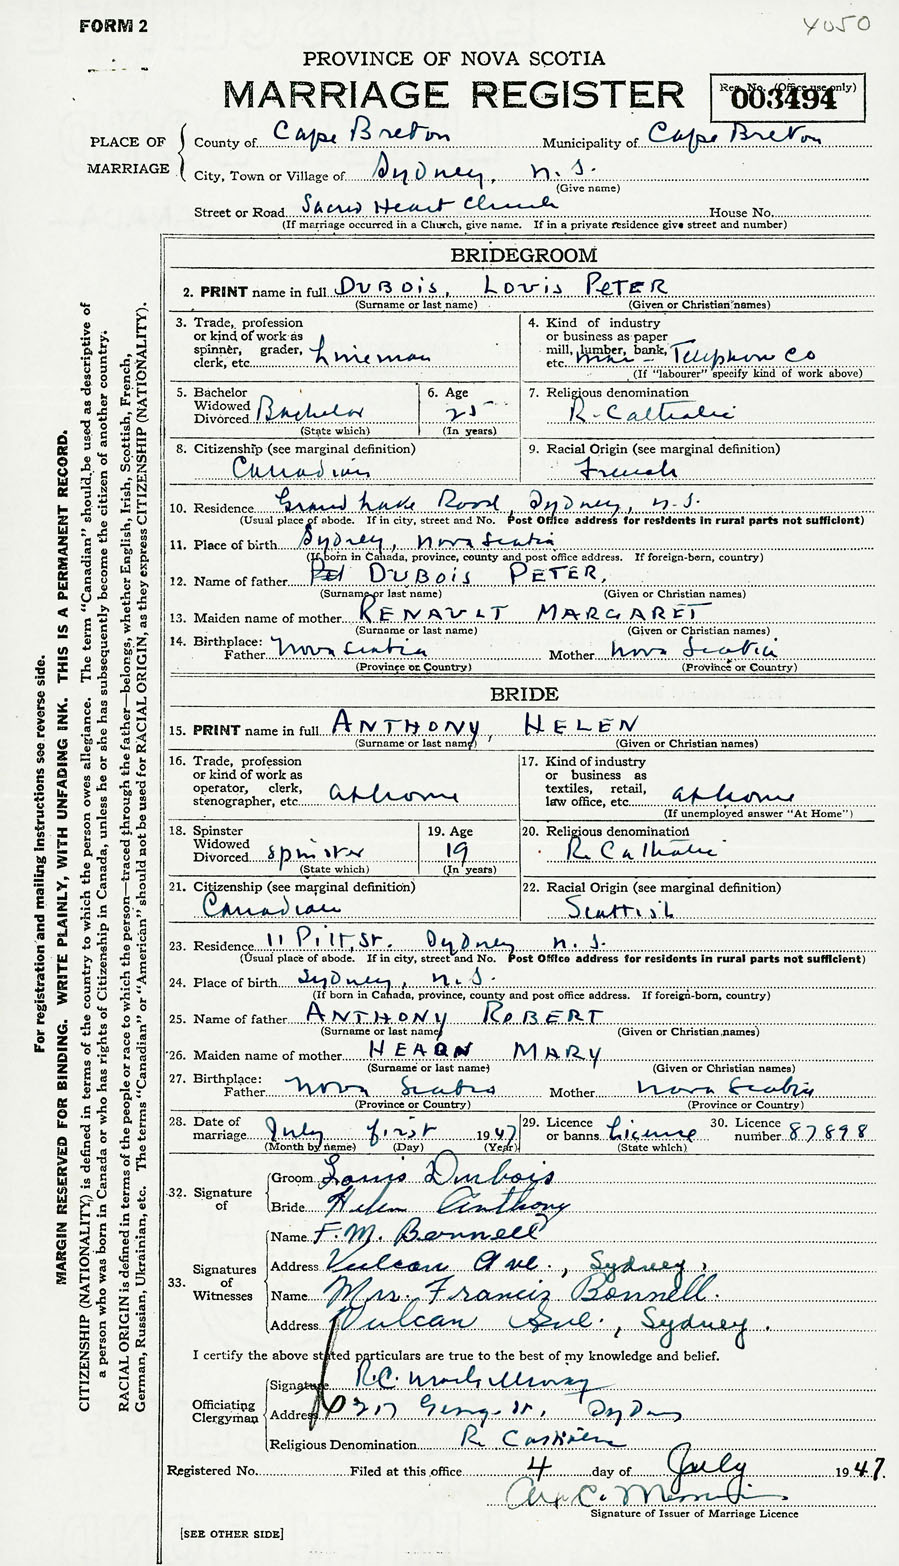 FORM 2
4050
PROVINCE OF NOVA SCOTIA
MARRIAGE REGISTER
Reg. No. (Office use only)
003494
PLACE OF MARRIAGE
County of Cape Breton Municipality of Cape Breton
City, Town or Village of Sydney, N.S.
(Give name)
Street or Road Sacred Heart Church House No.
(If marriage occurred in a Church, give name. If in a private residence give street and number)
BRIDEGROOM
2. PRINT name in full DUBOIS, LOUIS PETER
(Surname or last name) (Given or Christian names)
3. Trade, profession or kind of work as spinner, grader, clerk, etc. Lineman
4. Kind of industry or business as paper mill, lumber, bank, etc. Telephone Co
(If "labourer" specify kind of work above)
5. Bachelor Widowed Divorced Bachelor
(State which)
6. Age 25
(In years)
7. Religious denomination R. Catholic
8. Citizenship (see marginal definition)
Canadian
9. Racial Origin (see marginal definition)
French
10. Residence Grand Lake Road, Sydney, N.S.
(Usual place of abode. If in city, street and No. Post Office address for residents in rural parts not sufficient)
11. Place of birth Sydney, Nova Scotia
(If born in Canada, province, county and post office address. If foreign-born, country)
12. Name of father DUBOIS PETER.
(Surname or last name) (Given or Christian names)
13. Maiden name of mother RENAULT MARGARET
(Surname or last name) (Given or Christian names)
14. Birthplace: Father Nova Scotia Mother Nova Scotia
(Province or Country) (Province or Country)
BRIDE
15. PRINT name in full ANTHONY, HELEN
(Surname or last name) (Given or Christian names)
16. Trade, profession or kind of work as operator, clerk, stenographer, etc. at home
17. Kind of industry or business as textiles, retail, law office, etc. at home
(If unemployed answer "At Home")
18. Spinster Widowed Divorced Spinster
(State which)
19. Age 19
(In years)
20. Religious denomination R. Catholic
21. Citizenship (see marginal definition)
Canadian
22. Racial Origin (see marginal definition)
Scottish
23. Residence 11 Pitt St. Sydney N.S.
(Usual place of abode. If in city, street and No. Post Office address for residents in rural parts not sufficient)
24. Place of birth Sydney, N.S.
(If born in Canada, province, county and post office address. If foreign-born, country)
25. Name of father ANTHONY ROBERT
(Surname or last name) (Given or Christian names)
26. Maiden name of mother HEARN MARY
(Surname or last name) (Given or Christian names)
27. Birthplace: Father Nova Scotia Mother Nova Scotia
(Province or Country) (Province or Country)
28. Date of marriage July first 1947
(Month by name) (Day) (Year)
29. Licence or banns Licence
(State which)
30. Licence number 87898
32. Signature of
Groom Louis Dubois
Bride Helen Anthony
33. Signatures of Witnesses
Name F.M. Bonnell
Address Vulcan Ave., Sydney.
Name Mrs. Francis Bonnell.
Address Vulcan Ave., Sydney.
I certify the above stated particulars are true to the best of my knowledge and belief.
Officiating Clergyman
Signature R.C.
Address George St, Sydney
Religious Denomination R.
Registered No. Filed at this office 4 day of July 1947.
Signature of Issuer of Marriage Licence
[SEE OTHER SIDE]
For registration and mailing instructions see reverse side.
MARGIN RESERVED FOR BINDING. WRITE PLAINLY, WITH UNFADING INK. THIS IS A PERMANENT RECORD.
CITIZENSHIP (NATIONALITY) is defined in terms of the country to which the person owes allegiance. The term "Canadian" should be used as descriptive of
a person who was born in Canada or who has rights of Citizenship in Canada, unless he or she has subsequently become the citizen of another country.
RACIAL ORIGIN is defined in terms of the people or race to which the person—traced through the father—belongs, whether English, Irish, Scottish, French,
German, Russian, Ukrainian, etc. The terms "Canadian" or "American" should not be used for RACIAL ORIGIN, as they express CITIZENSHIP (NATIONALITY).